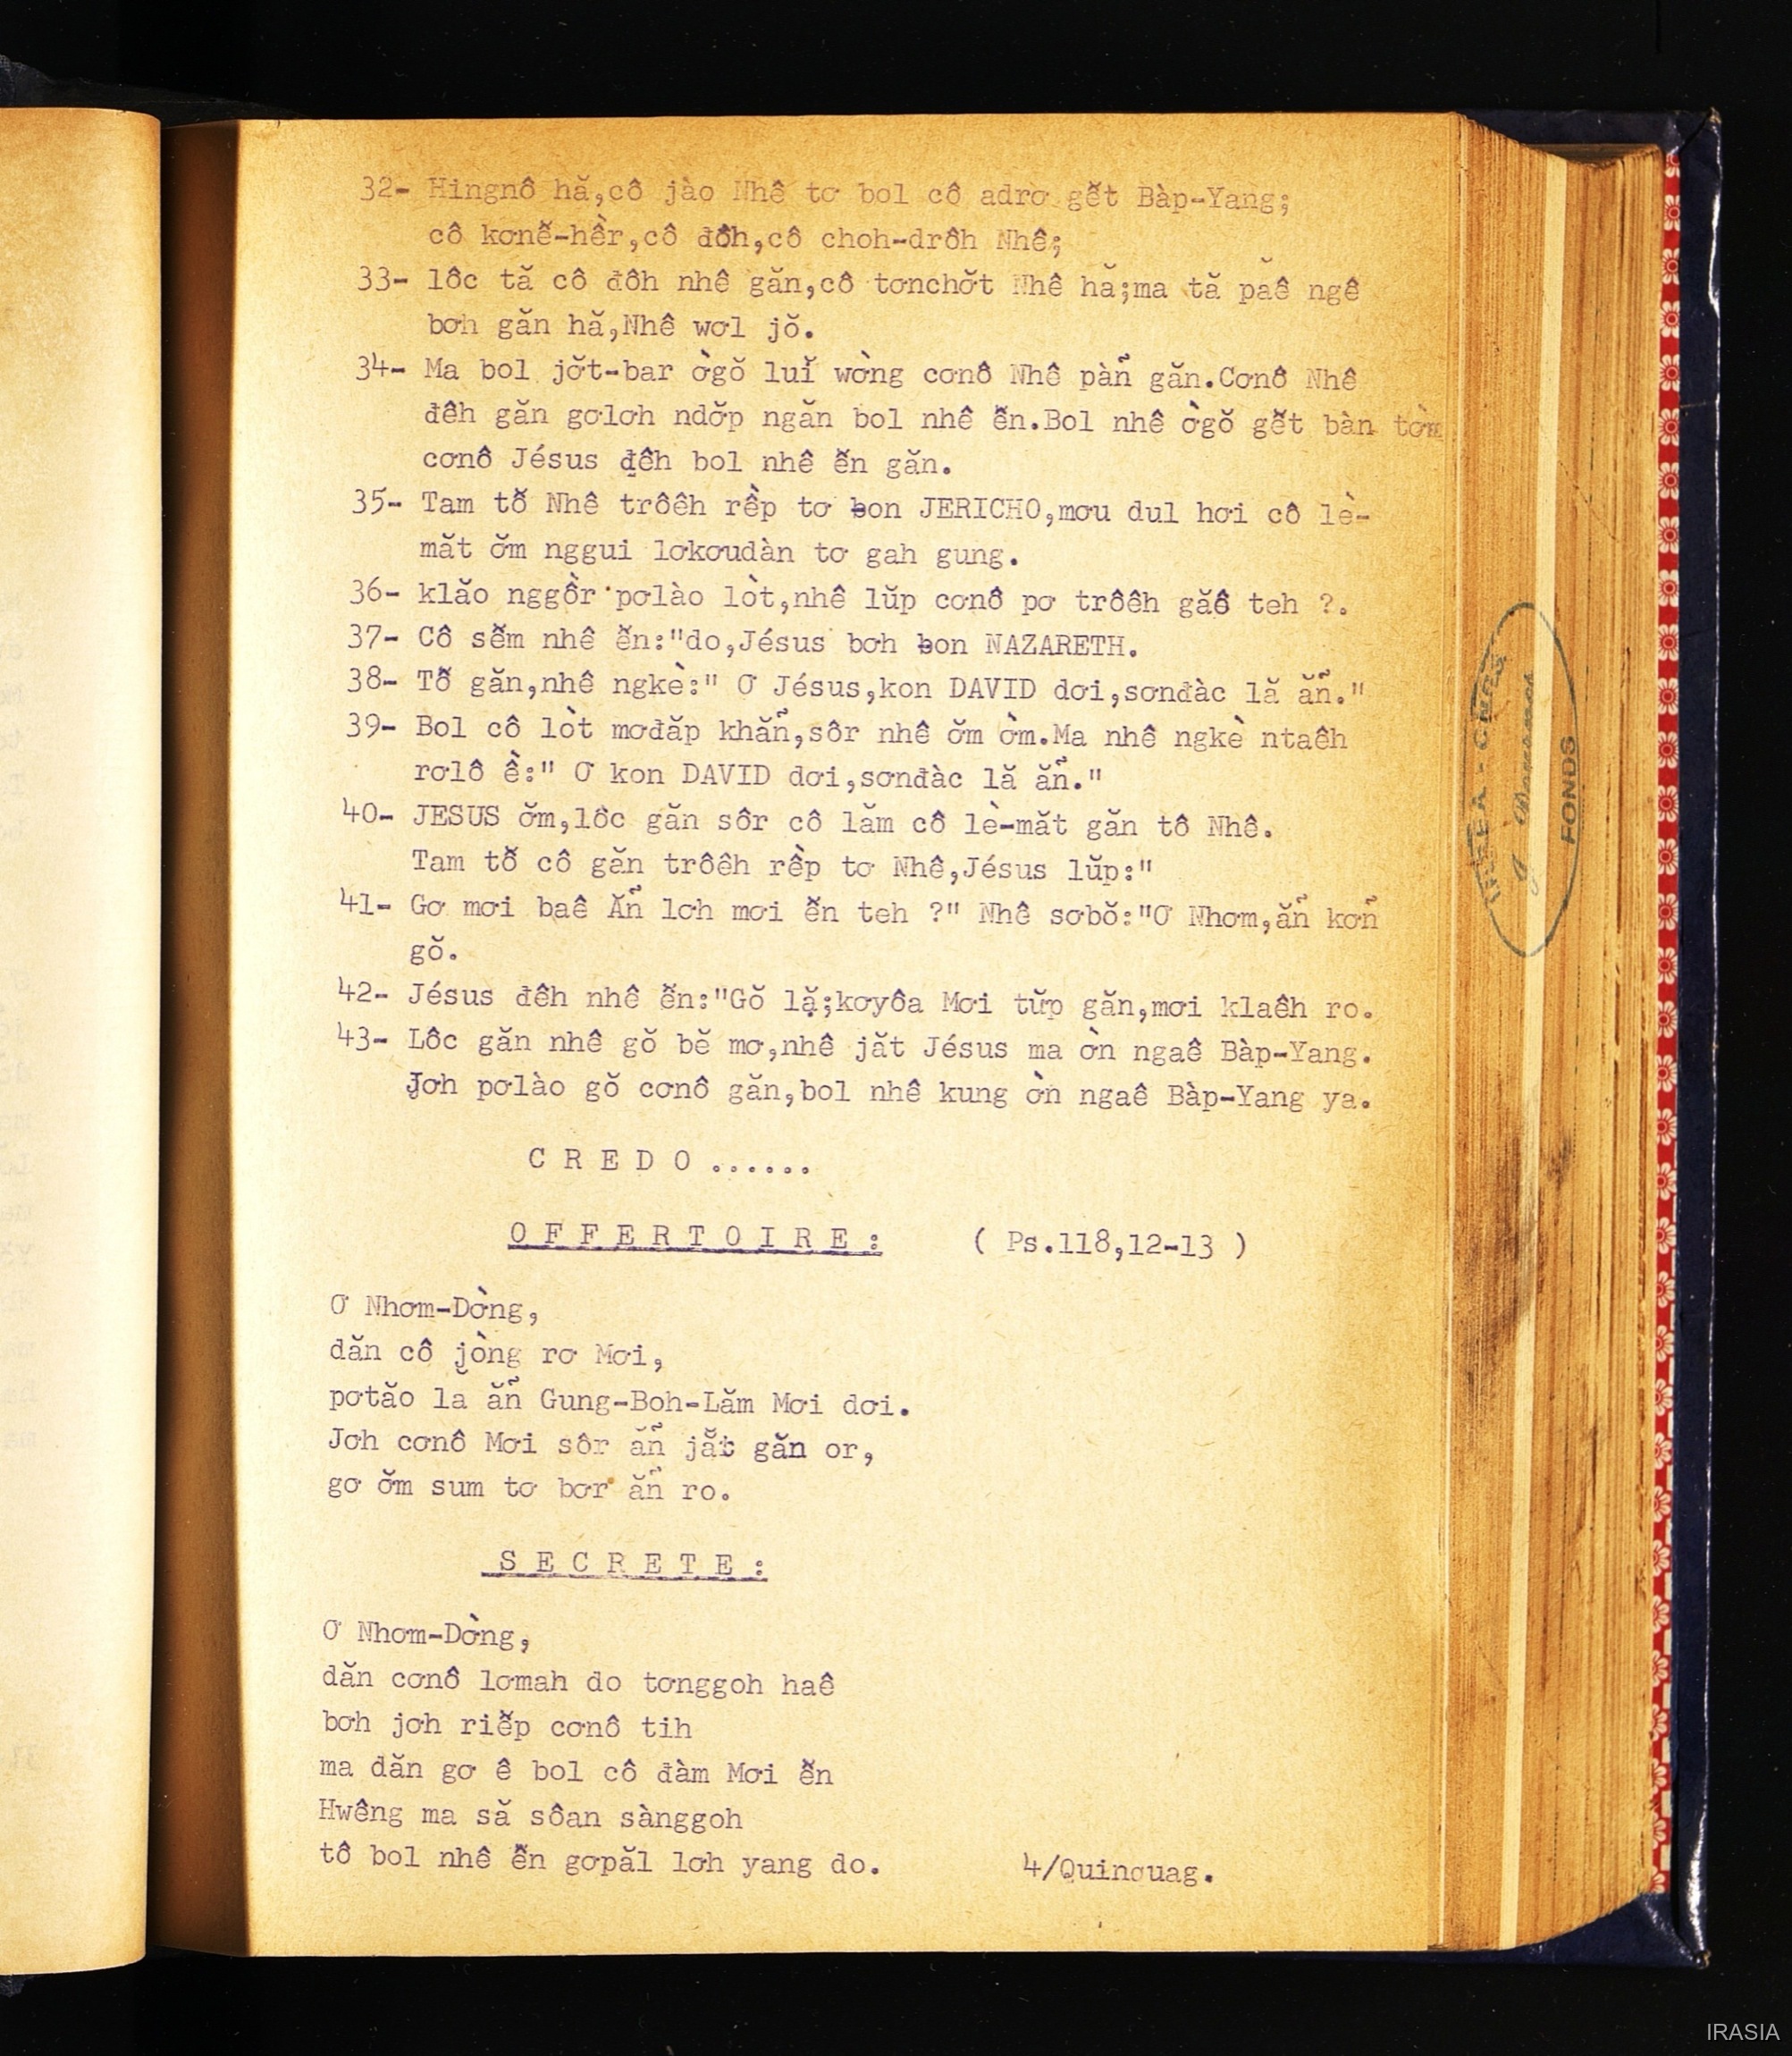 32- Hingnô hă,cô jào Nhê tơ bol cô adrơ gê̆t Bàp-Yang;
cô kơnê̆-hềr,cô đôh,cô choh-drôh Nhê;
33- lôc tă cô đôh nhê găn,cô tơnchơ̆t Nhê hă;ma tă păê ngê
bơh găn hă,Nhê wơl jŏ.
34- Ma bol jơ̆t-bar ờgŏ luĭ wờng cơnô Nhê pàn̉ găn.Cơnô Nhê
đêh găn gơlơh ndơ̆p ngăn bol nhê ê̆n.Bol nhê ờgŏ gê̆t bàn tờm
cơnô Jésus đêh bol nhê ê̆n găn.
35- Tam tơ̆ Nhê trôêh rềp tơ ƀon JERICHO,mơu dul hơi cô lè-
măt ơ̆m nggui lơkơudàn tơ gah gung.
36- klăo nggồr pơlào lòt,nhê lŭp cơnô pơ trôêh găô teh ?.
37- Cô sê̆m nhê ê̆n:"do,Jésus bơh ƀon NAZARETH.
38- Tơ̆ găn,nhê ngkè:" Ơ Jésus,kon DAVID dơi,sơnđàc lă ăn̉."
39- Bol cô lòt mơđăp khăn̉,sôr nhê ơ̆m ờm.Ma nhê ngkè ntaêh
rơlô ề:" Ơ kon DAVID dơi,sơnđàc lă ăn̉."
40- JESUS ơ̆m,lôc găn sôr cô lăm cô lè-măt găn tô Nhê.
Tam tơ̆ cô găn trôêh rềp tơ Nhê,Jésus lŭp:"
41- Gơ mơi baê Ăn̉ lơh mơi ê̆n teh ?" Nhê sơbŏ:"Ơ Nhơm,ăn̉ kơn̉
gŏ.
42- Jésus đêh nhê ê̆n:"Gŏ lặ;kơyôa Mơi tư̆p găn,mơi klaêh ro.
43- Lôc găn nhê gŏ bĕ mơ,nhê jăt Jésus ma ờn ngaê Bàp-Yang.
Jơh pơlào gŏ cơnô găn,bol nhê kung ờn ngaê Bàp-Yang ya.
C R E D O ......
O F F E R T O I R E : ( Ps.118,12-13 )
Ơ Nhơm-Dờng,
dăn cô jòng rơ Mơi,
pơtăo la ăn̉ Gung-Boh-Lăm Mơi dơi.
Jơh cơnô Mơi sôr ăn̉ jăt găn or,
gơ ơ̆m sum tơ bơr ăn̉ ro.
S E C R E T E :
Ơ Nhơm-Dờng,
dăn cơnô lơmah do tơnggoh haê
bơh jơh riê̆p cơnô tih
ma đăn gơ ê bol cô đàm Mơi ê̆n
Hwêng ma să sôan sànggoh
tô bol nhê ê̆n gơpăl lơh yang do.
4/Quinquag.
FONDS
IRASIA